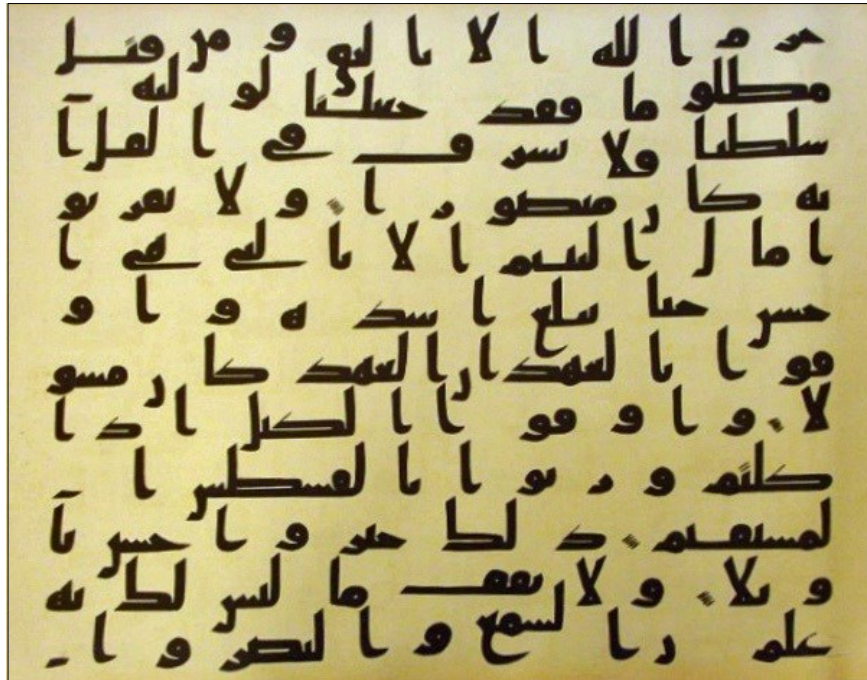 حرم الله الا بالحق ومن قتل
مظلوما فقد جعلنا لوليه
سلطنا فلا يسرف في القتل ا
نه كان منصورا ولا تقربو
ا مال اليتيم الا بالتي هي ا
حسن حتا يبلغ اشده واو
فوا بالعهد ان العهد كان مسو
لا واوفوا الكيل اذا
كلتم وزنوا بالقسطس ا
لمستقيم ذلك خير واحسن تا
ويلا ولا تقف ما ليس لك به
علم ان السمع والبصر وا